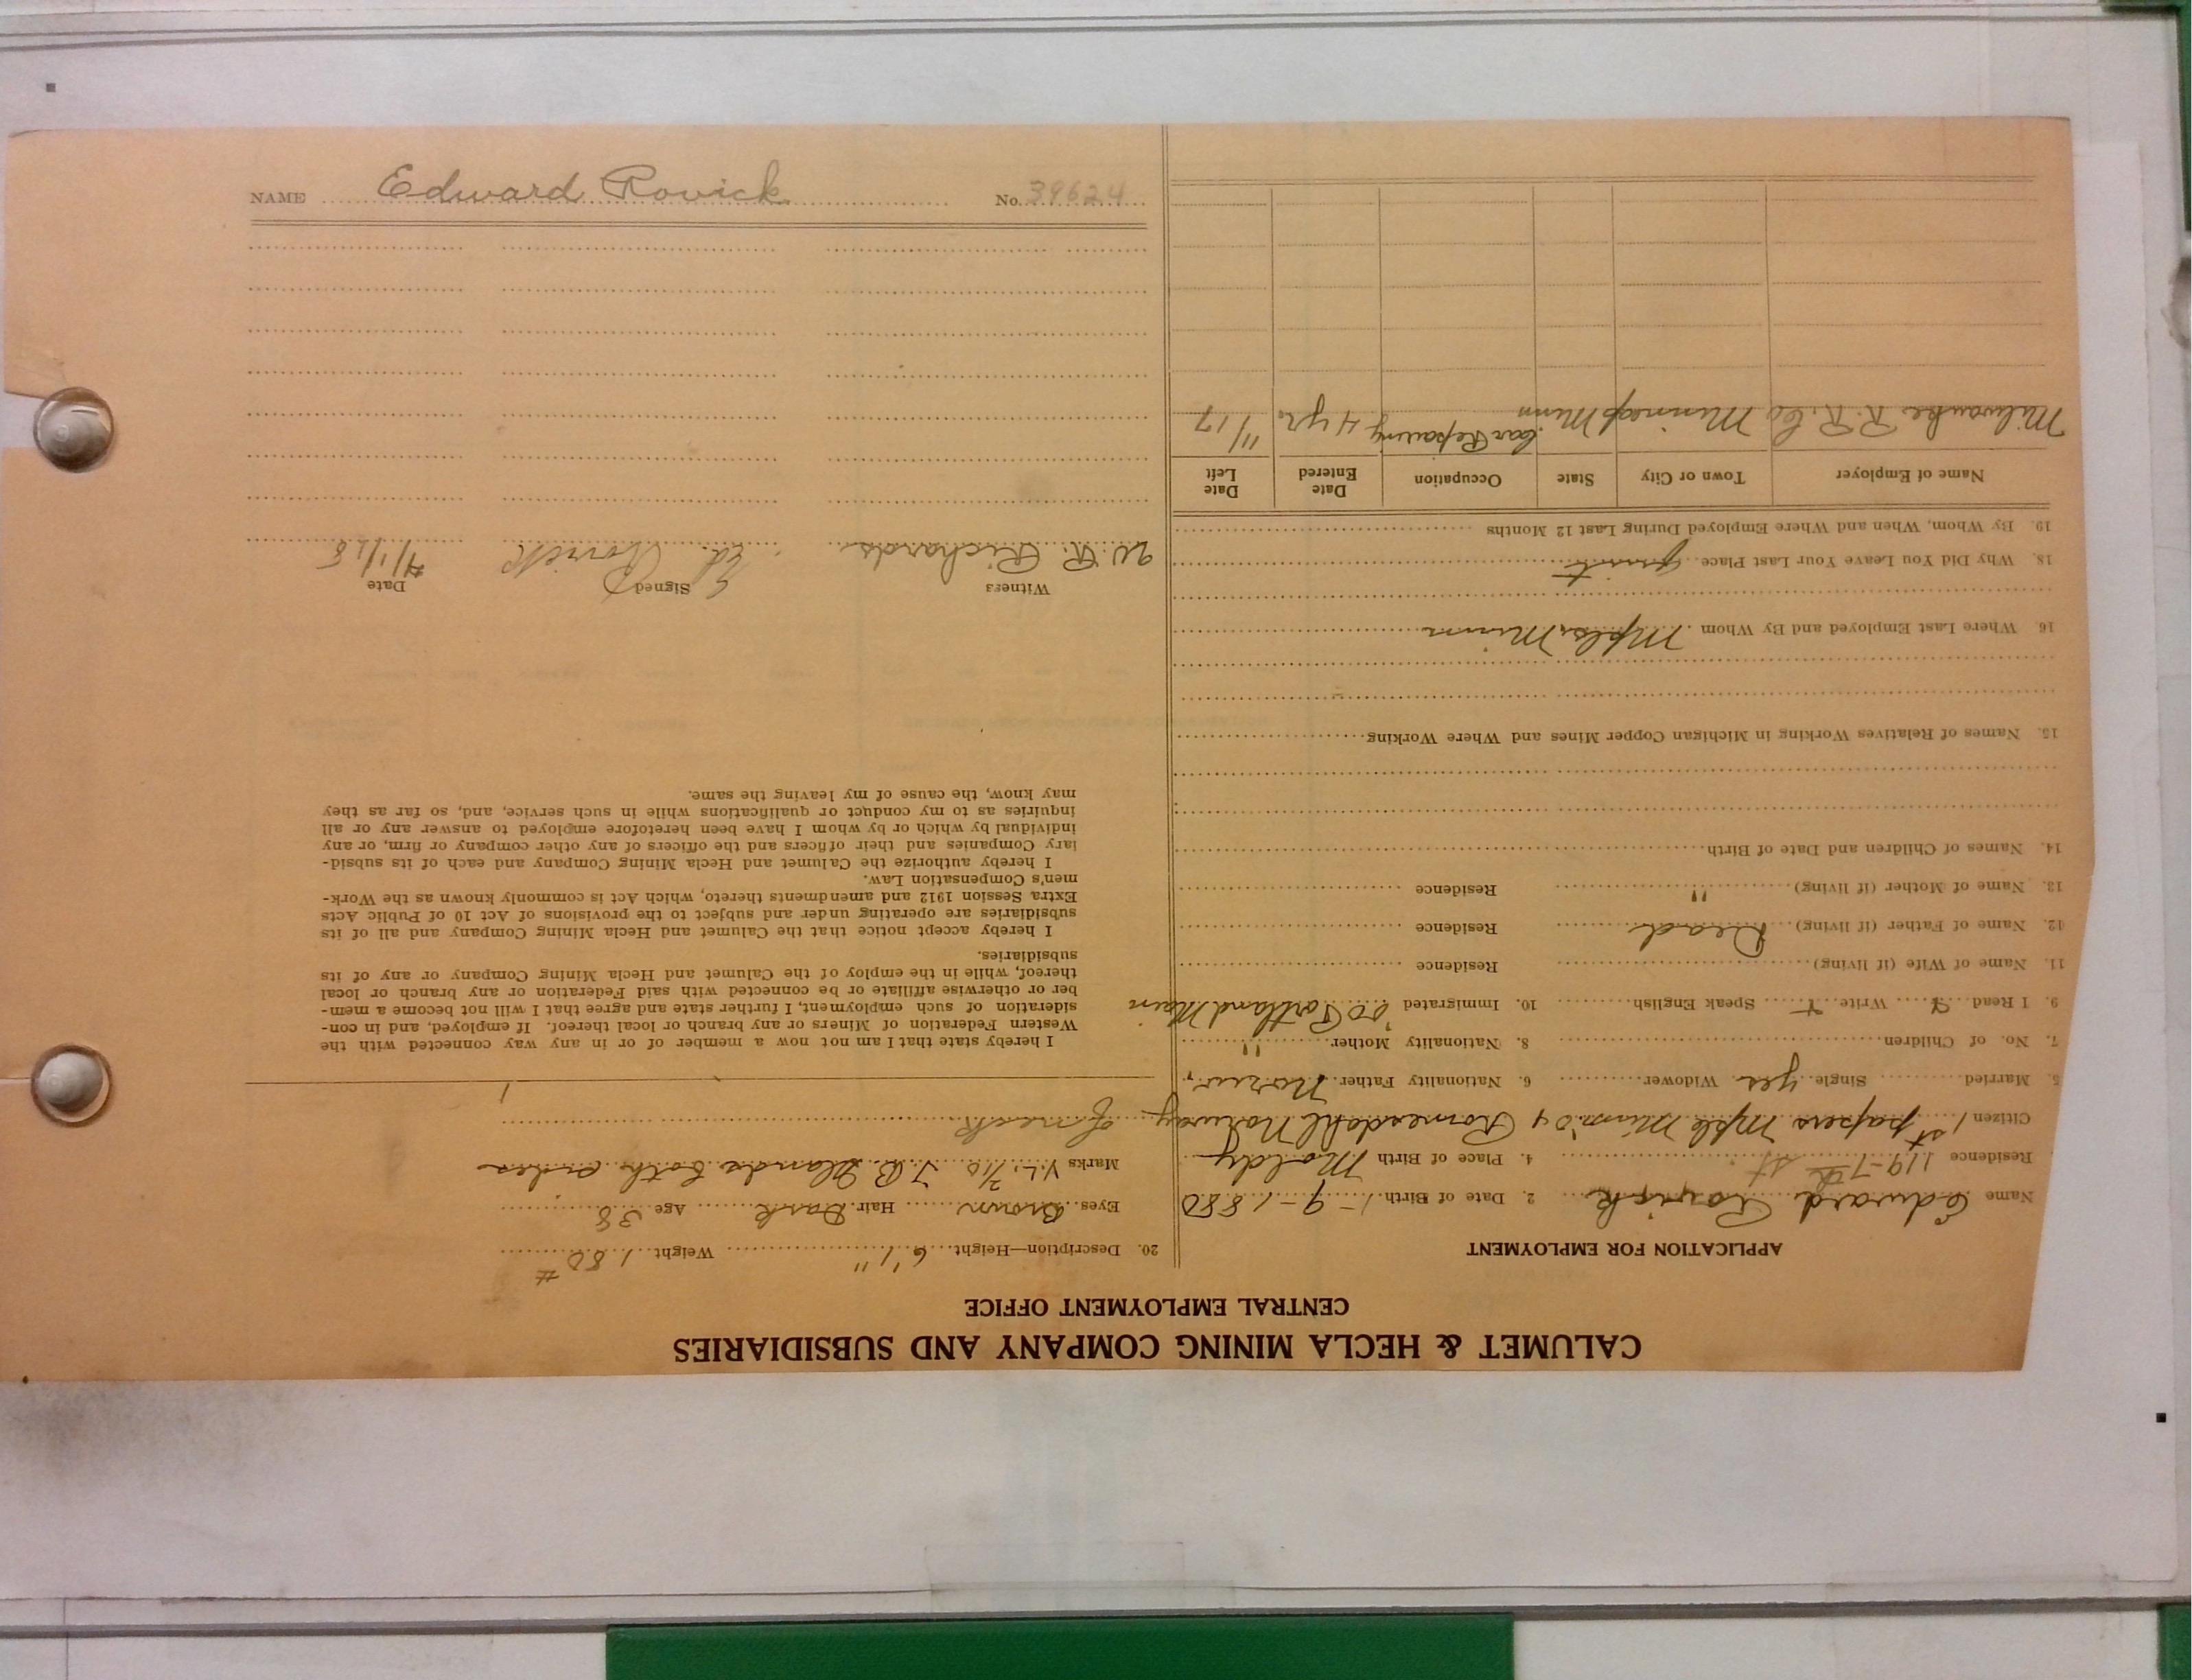 CALUMET & HECLA MINING COMPANY AND SUBSIDIARIES
CENTRAL EMPLOYMENT OFFICE
APPLICATION FOR EMPLOYMENT
Name Edward Rovick 2. Date of Birth 1-9-1880
Residence 119-7th St 4. Place of Birth Moldy
Citizen 1st papers Mpls Minn '04 Romesdahl Norway
5. Married Single yes Widower 6. Nationality Father Norw.
7. No. of Children 8. Nationality Mother "
9. I Read Write Speak English 10. Immigrated '00 Portland Main
11. Name of Wife (if living) Residence
12. Name of Father (if living) Dead Residence
13. Name of Mother (if living) " Residence
14. Names of Children and Date of Birth
15. Names of Relatives Working in Michigan Copper Mines and Where Working
16. Where Last Employed and By Whom Mpls. Minn
18. Why Did You Leave Your Last Place quit
19. By Whom, When and Where Employed During Last 12 Months
Name of Employer Town or City State Occupation Date Entered Date Left
Milwauke R.R. Co Minneap Minn Car Repairing 4 yr. 11/17
20. Description—Height 6'1" Weight 180#
Eyes Brown Hair Dark Age 38
Marks V.L. 7/10 T.B. Glands both sides
of neck
I hereby state that I am not now a member of or in any way connected with the
Western Federation of Miners or any branch or local thereof. If employed, and in con-
sideration of such employment, I further state and agree that I will not become a mem-
ber or otherwise affiliate or be connected with said Federation or any branch or local
thereof, while in the employ of the Calumet and Hecla Mining Company or any of its
subsidiaries.
I hereby accept notice that the Calumet and Hecla Mining Company and all of its
subsidiaries are operating under and subject to the provisions of Act 10 of Public Acts
Extra Session 1912 and amendments thereto, which Act is commonly known as the Work-
men's Compensation Law.
I hereby authorize the Calumet and Hecla Mining Company and each of its subsid-
iary Companies and their officers and the officers of any other company or firm, or any
individual by which or by whom I have been heretofore employed to answer any or all
inquiries as to my conduct or qualifications while in such service, and, so far as they
may know, the cause of my leaving the same.
Witness Signed Date
W. R. Richards Ed. Rovick 4/1/18
NAME Edward Rovick No. 39624